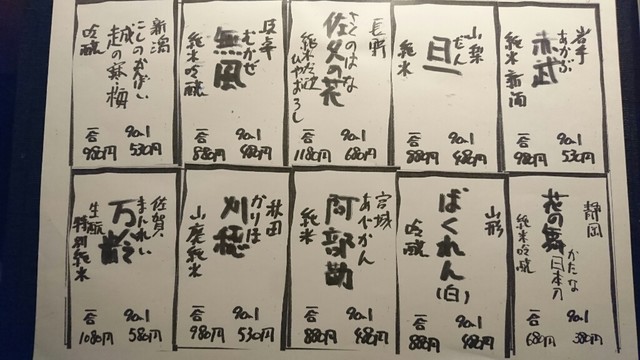 岩手
あかぶ
赤武
純米 新酒
90ml 530円
一合 980円
山梨
だん
旦
純米
90ml 480円
一合 880円
長野
さくのはな
佐久の花
純米吟醸
ひやおろし
90ml 680円
一合 1180円
岐阜
むかぜ
無風
純米吟醸
90ml 480円
一合 880円
新潟
こしのかんばい
越の寒梅
吟醸
90ml 530円
一合 980円
静岡
花の舞
かたな
日本刀
純米吟醸
90ml 380円
一合 680円
山形
ばくれん
(白)
吟醸
90ml 480円
一合 880円
宮城
あべかん
阿部勘
純米
90ml 480円
一合 880円
秋田
かりほ
刈穂
山廃純米
90ml 530円
一合 980円
佐賀
まんれい
万齢
生酛
特別純米
90ml 580円
一合 1080円